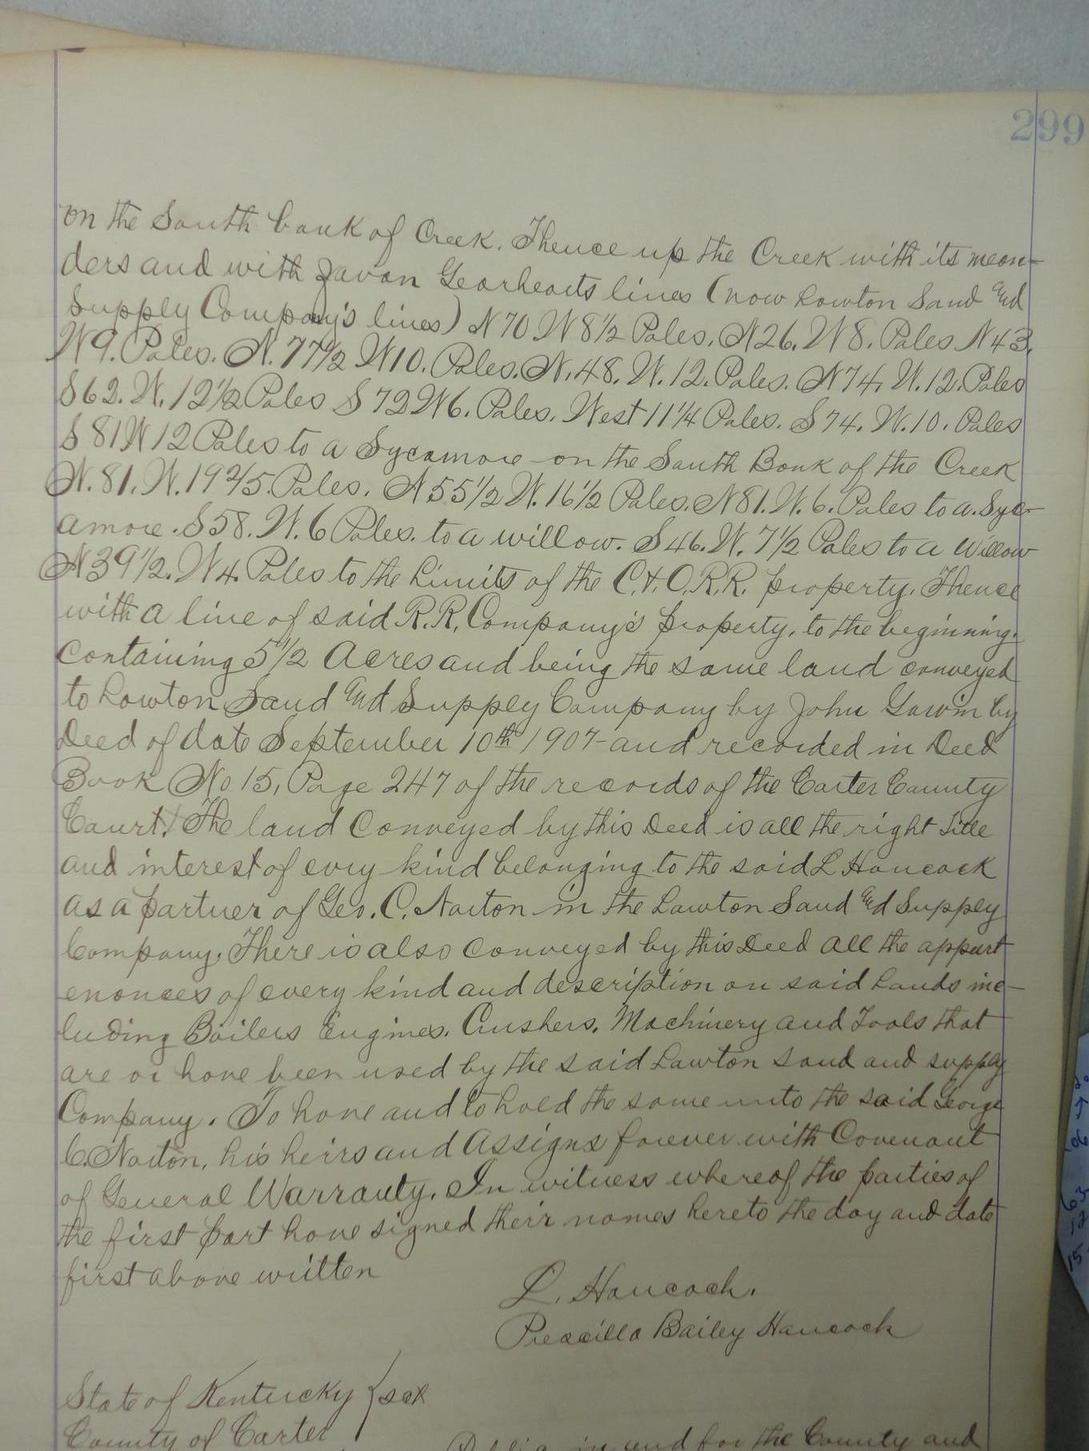 299
on the South bank of Creek. Thence up the Creek with its mean-
ders and with Javan Gearhearts lines (now Lawton Sand and
Supply Company's lines) N70 W8½ Poles. N26. W8. Poles N43.
W9. Poles. N. 77½ W10. Poles. N. 48. W. 12. Poles. N74. W. 12. Poles
S62. W. 12½ Poles S72 W6. Poles. West 11¼ Poles. S74. W. 10. Poles
S81 W12 Poles to a Sycamore on the South Bank of the Creek
N. 81. W. 19 2/5 Poles. N55½ W. 16½ Poles. N81. W. 6. Poles to a Syc-
amore. S58. W. 6 Poles. to a willow. S46. W. 7½ Poles to a Willow
N39½. W4. Poles to the Limits of the C.&O.R.R. property. Thence
with a line of said R.R. Company's property, to the beginning.
Containing 5½ Acres and being the same land conveyed
to Lawton Sand and Supply Company by John by
Deed of date September 10th 1907 and recorded in Deed
Book No 15, Page 247 of the records of the Carter County
Court. The land Conveyed by this Deed is all the right Title
and interest of evry kind belonging to the said L Hancock
as a partner of Geo. C. Norton in the Lawton Sand and Supply
Company. There is also conveyed by this Deed all the appurt
enances of every kind and description on said Lands inc-
luding Boilers Engines. Crushers. Machinery and Tools that
are or have been used by the said Lawton sand and supply
Company. To have and to hold the same unto the said George
C. Norton, his heirs and Assigns forever with Covenant
of General Warranty. In witness whereof the parties of
the first part have signed their names hereto the day and date
first above written
L. Hancock.
Prescilla Bailey Hancock
State of Kentucky } sct
County of Carter
in and for the County and